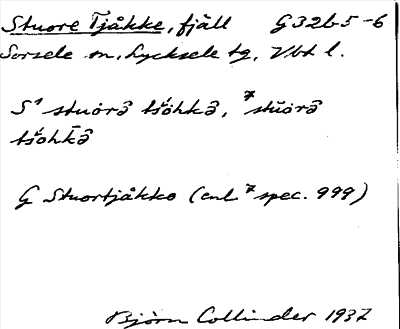 Stuore Tjåkke, fjäll G32b5-6
Sorsele sn, Lycksele tg, Vbt l.
S¹ stuorə̂ tšŏhkə̂, ⁷stŭorə̂
tšŏhk̄ə̂
G Stuortjåkko (enl ⁷spec. 999)
Björn Collinder 1937